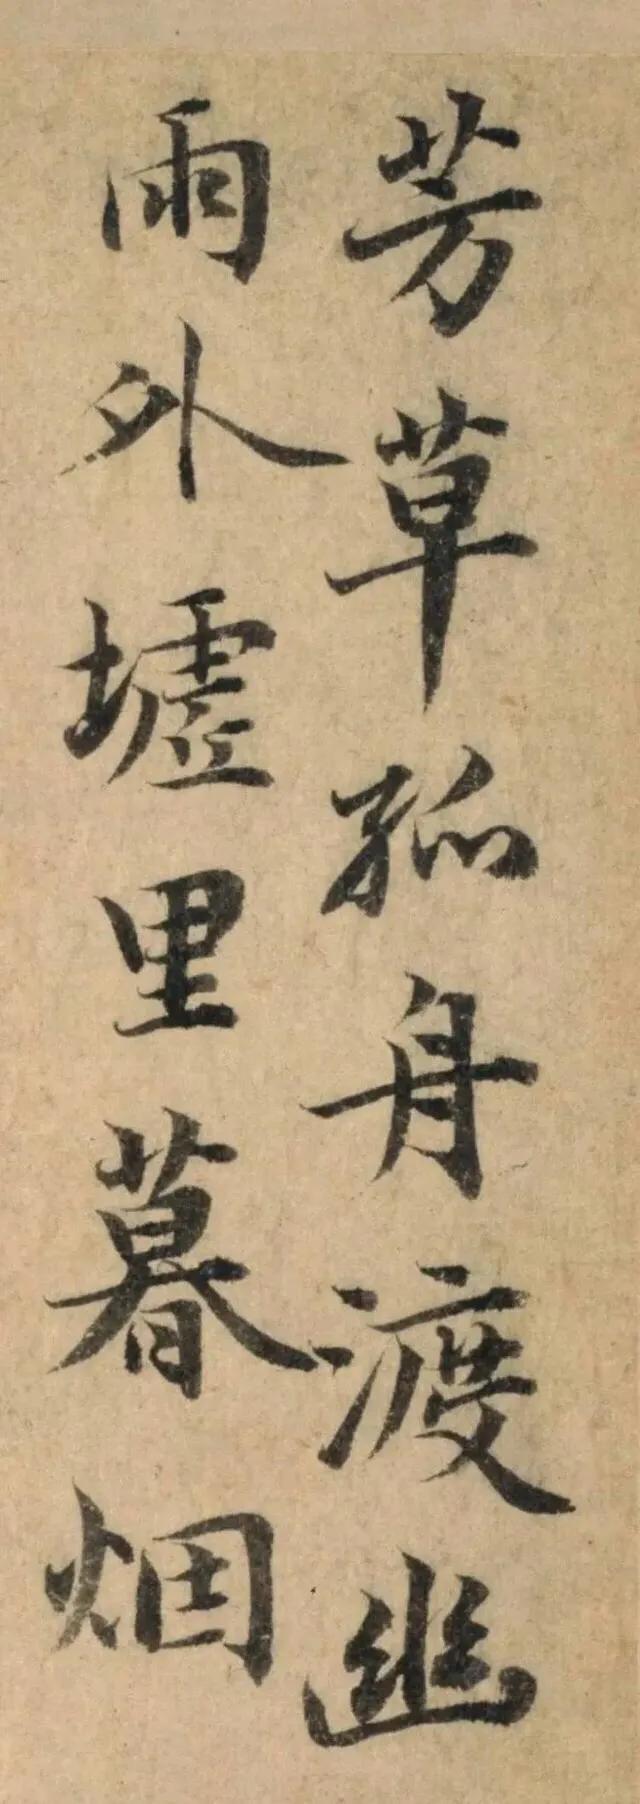 芳草孤舟渡幽
雨外墟里暮烟